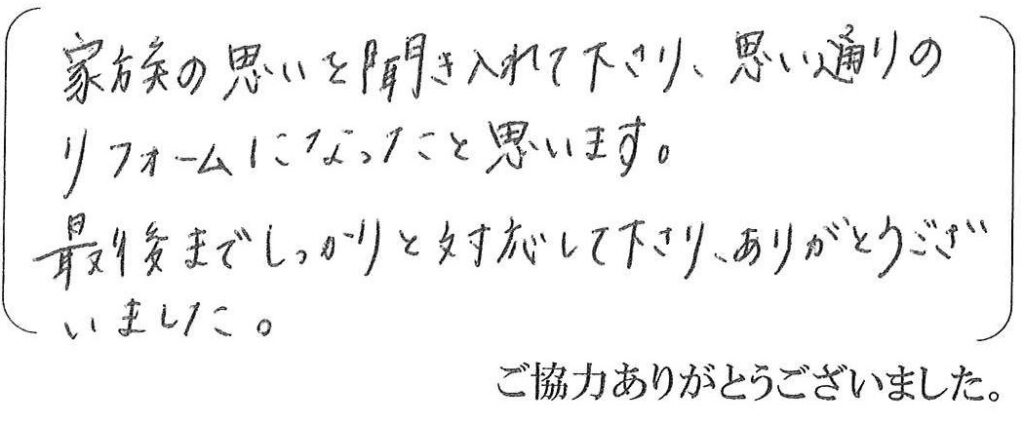 家族の思いを聞き入れて下さり、思い通りの
リフォームになったこと思います。
最後までしっかりと対応して下さり、ありがとうござ
いました。
ご協力ありがとうございました。